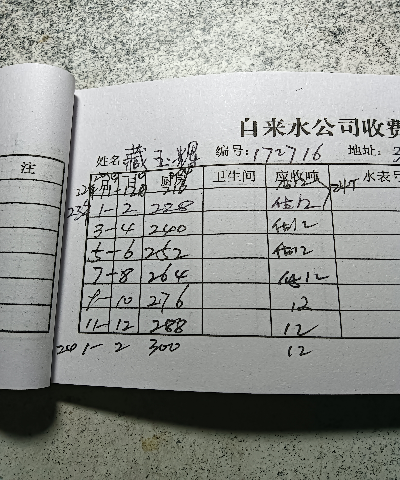 自来水公司收费
姓名: 藏玉辉 编号: 172716 地址:
注 月 日 厨房 卫生间 应收吨 水表号
23年 1-2 228 估12
3-4 240 估12
5-6 252 估12
7-8 264 估12
9-10 276 12
11-12 288 12
24 1-2 300 12